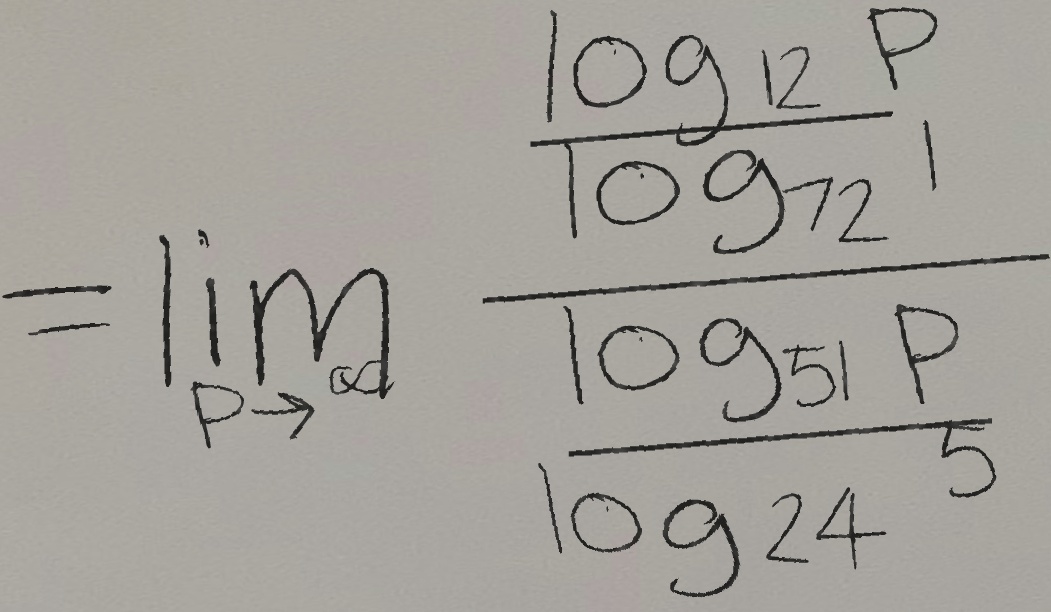 = \lim_{p \to \infty} \frac{\frac{\log_{12} P}{\log_{72} 1}}{\frac{\log_{51} P}{\log_{24} 5}}